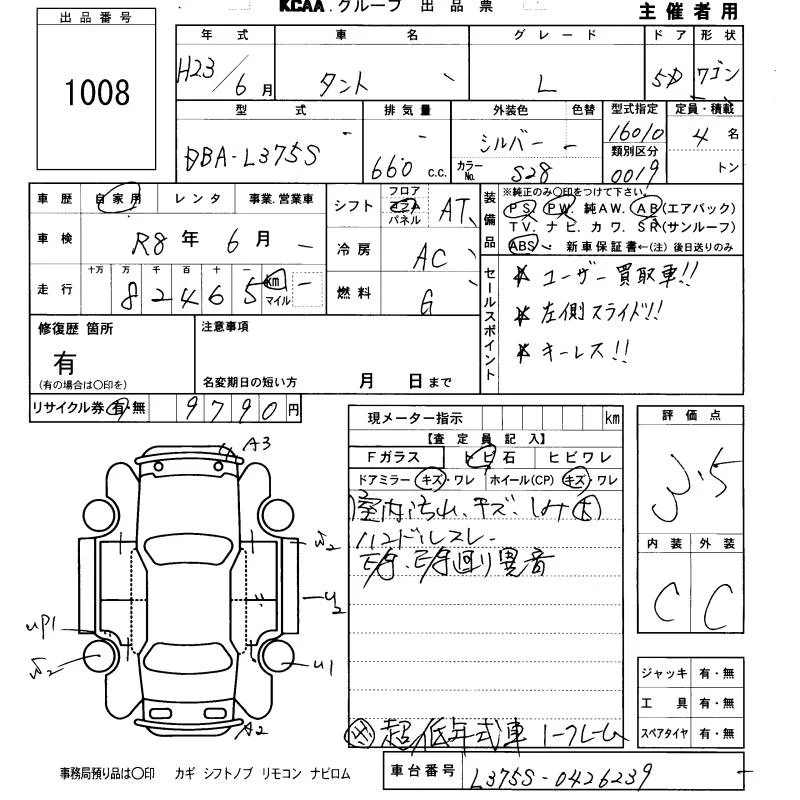 KCAA.グループ 出品票
主催者用
出品番号
1008
年式 車名 グレード ドア 形状
H23/6月 タント L 5D ワゴン
型式 排気量 外装色 色替 型式指定 定員・積載
DBA-L375S 660 C.C. シルバー 16010 4名
カラーNo. S28 類別区分 0019 トン
車歴 自家用 レンタ 事業.営業車
シフト フロア コラム パネル AT
装備品 ※純正のみ〇印をつけて下さい。
PS PW. 純AW. AB(エアバック)
TV. ナビ. カワ. SR(サンルーフ)
ABS. 新車保証書←(注) 後日送りのみ
車検 R8年 6月
冷房 AC
走行 十万 万 千 百 十 一
82465 km マイル
燃料 G
セールスポイント
ユーザー買取車!!
左側スライド!!
キーレス!!
修復歴 箇所
有
(有の場合は〇印を)
注意事項
名変期日の短い方 月 日まで
リサイクル券 有・無 9790円
現メーター指示 km
【査定員記入】
Fガラス トビ石 ヒビワレ
ドアミラー キズ・ワレ ホイール(CP) キズ・ワレ
室内汚れ、キズ、シミ大
ハンドルスレ
異音
超低年式車
評価点
3.5
内装 外装
C C
A3
U2
UP1
U1
A2
ジャッキ 有・無
工具 有・無
スペアタイヤ 有・無
事務局預り品は〇印 カギ シフトノブ リモコン ナビロム
車台番号 L375S-0426239